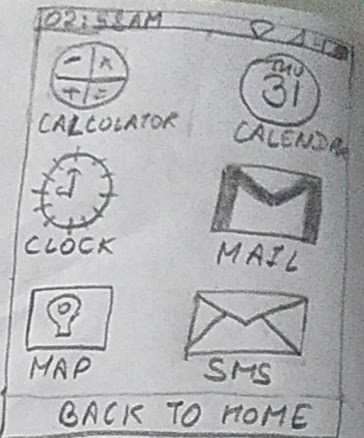 02:58AM
- ×
+ =
CALCULATOR
THU
31
CALENDAR
CLOCK
MAIL
MAP
SMS
BACK TO HOME